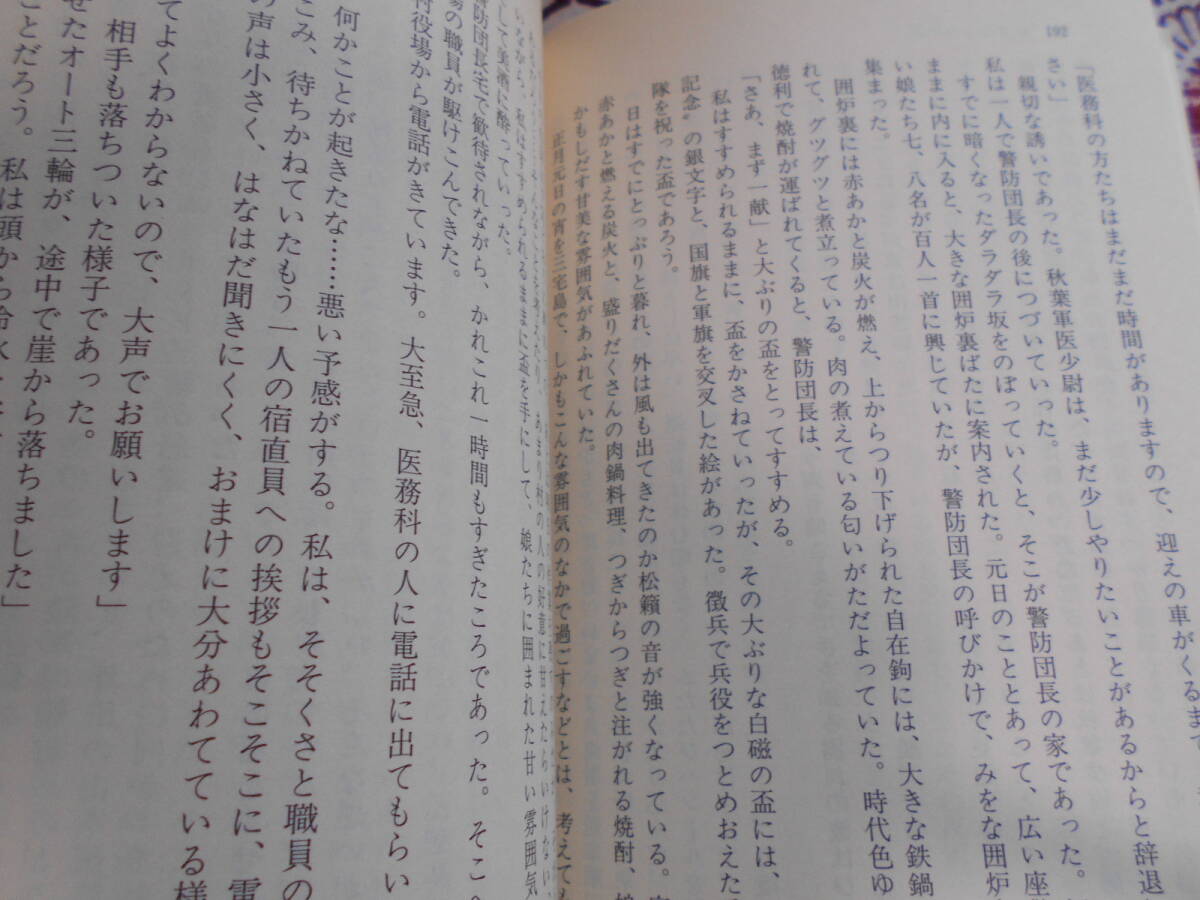 192
「医務科の方たちはまだまだ時間がありますので、迎えの車がくるまで
さい」
親切な誘いであった。秋葉軍医少尉は、まだ少しやりたいことがあるからと辞退
私は一人で警防団長の後につづいていった。
すでに暗くなったダラダラ坂をのぼっていくと、そこが警防団長の家であった。
ままに内に入ると、大きな囲炉裏ばたに案内された。元日のこととあって、広い座
い娘たち七、八名が百人一首に興じていたが、警防団長の呼びかけで、みをな囲炉
集まった。
囲炉裏には赤あかと炭火が燃え、上からつり下げられた自在鉤には、大きな鉄鍋
れて、グツグツと煮立っている。肉の煮えている匂いがただよっていた。時代色ゆ
徳利で焼酎が運ばれてくると、警防団長は、
「さあ、まず一献」と大ぶりの盃をとってすすめる。
私はすすめられるままに、盃をかさねていったが、その大ぶりな白磁の盃には、
記念〟の銀文字と、国旗と軍旗を交叉した絵があった。徴兵で兵役をつとめおえた
隊を祝った盃であろう。
日はすでにとっぷりと暮れ、外は風も出てきたのか松籟の音が強くなっている。
赤あかと燃える炭火と、盛りだくさんの肉鍋料理、つぎからつぎと注がれる焼酎、
かもしだす甘美な雰囲気があふれていた。
正月元日の宵を三宅島で、しかもこんな雰囲気のなかで過ごすなどとは、考えても
あまり村の人の好意に甘えたらいけない、
いながら、私はすすめられるままに盃を手にして、娘たちに囲まれた甘い雰囲気
して美酒に酔っていった。
警防団長宅で歓待されながら、かれこれ一時間もすぎたころであった。そこへ
場の職員が駆けこんできた。
村役場から電話がきています。大至急、医務科の人に電話に出てもらい
何かことが起きたな……悪い予感がする。私は、そそくさと職員の
こみ、待ちかねていたもう一人の宿直員への挨拶もそこそこに、電
の声は小さく、はなはだ聞きにくく、おまけに大分あわてている様
てよくわからないので、大声でお願いします」
相手も落ちついた様子であった。
せたオート三輪が、途中で崖から落ちました」
ことだろう。私は頭から冷水